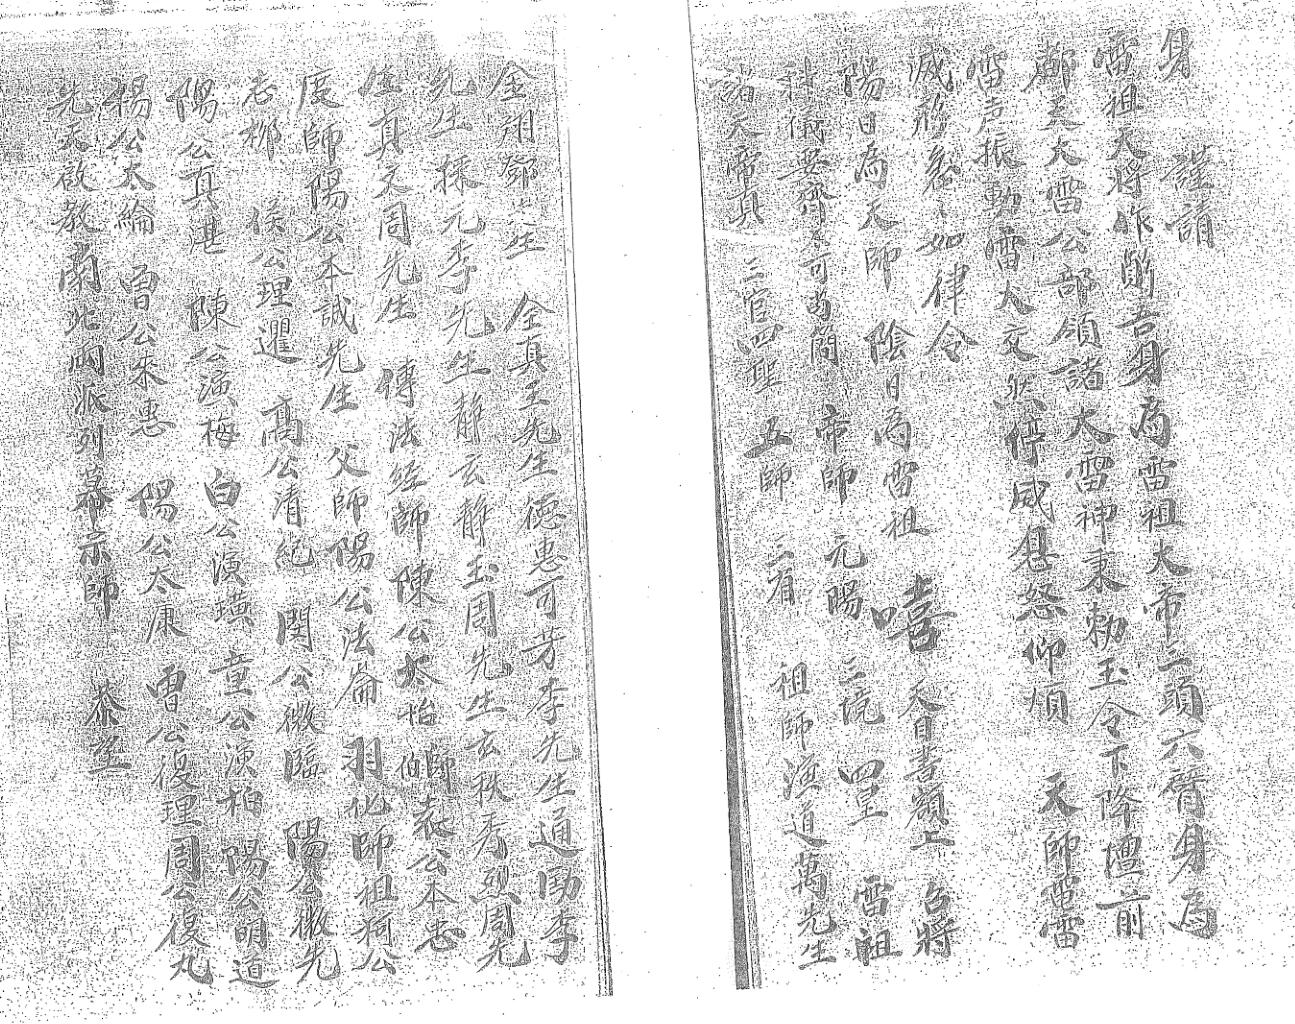 身　謹請
雷祖大將作斬吾身為雷祖大帝三頭六臂身為
都天大雷公部領諸大雷神秉勅玉令下降壇前
雷声振動雷火交然停威息怒仰煩　天師雷雷
滅形急々如律令
陽日為天師　陰日為雷祖　嘻　天目書額上　召將
科儀要齊不可苟簡　帝師　元賜　三境　四皇　雷祖
諸天帝真　三官四聖　五師　三省　祖師演道萬先生
金翊鄧先生　全真王先生德惠可芳李先生通勛李
先生　採元李先生靜玄靜玉周先生玄秩秀烈周先
生真文周先生　傳法經師陳公太怡　伯師袁公本忠
度師陽公本誠先生　父師陽公法崙　羽化師祖柯公
志挪　侯公理邐　高公清紀　閔公微臨　陽公微先
陽公真湛　陳公演梅　白公演璜　童公演柏　陽公明道
楊公太綸　曹公來惠　陽公太康　曹公復理周公復丸
先天啟教南北兩派列幕宗師　恭望